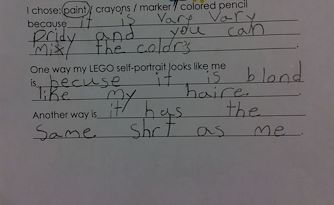 I chose: paint / crayons / marker / colored pencil
because it is Vare Vary
Pridy and you can
mix/ the colors.
One way my LEGO self-portrait looks like me
is becuse it is blond
like my haire.
Another way is it/ has the
Same shrt as me.